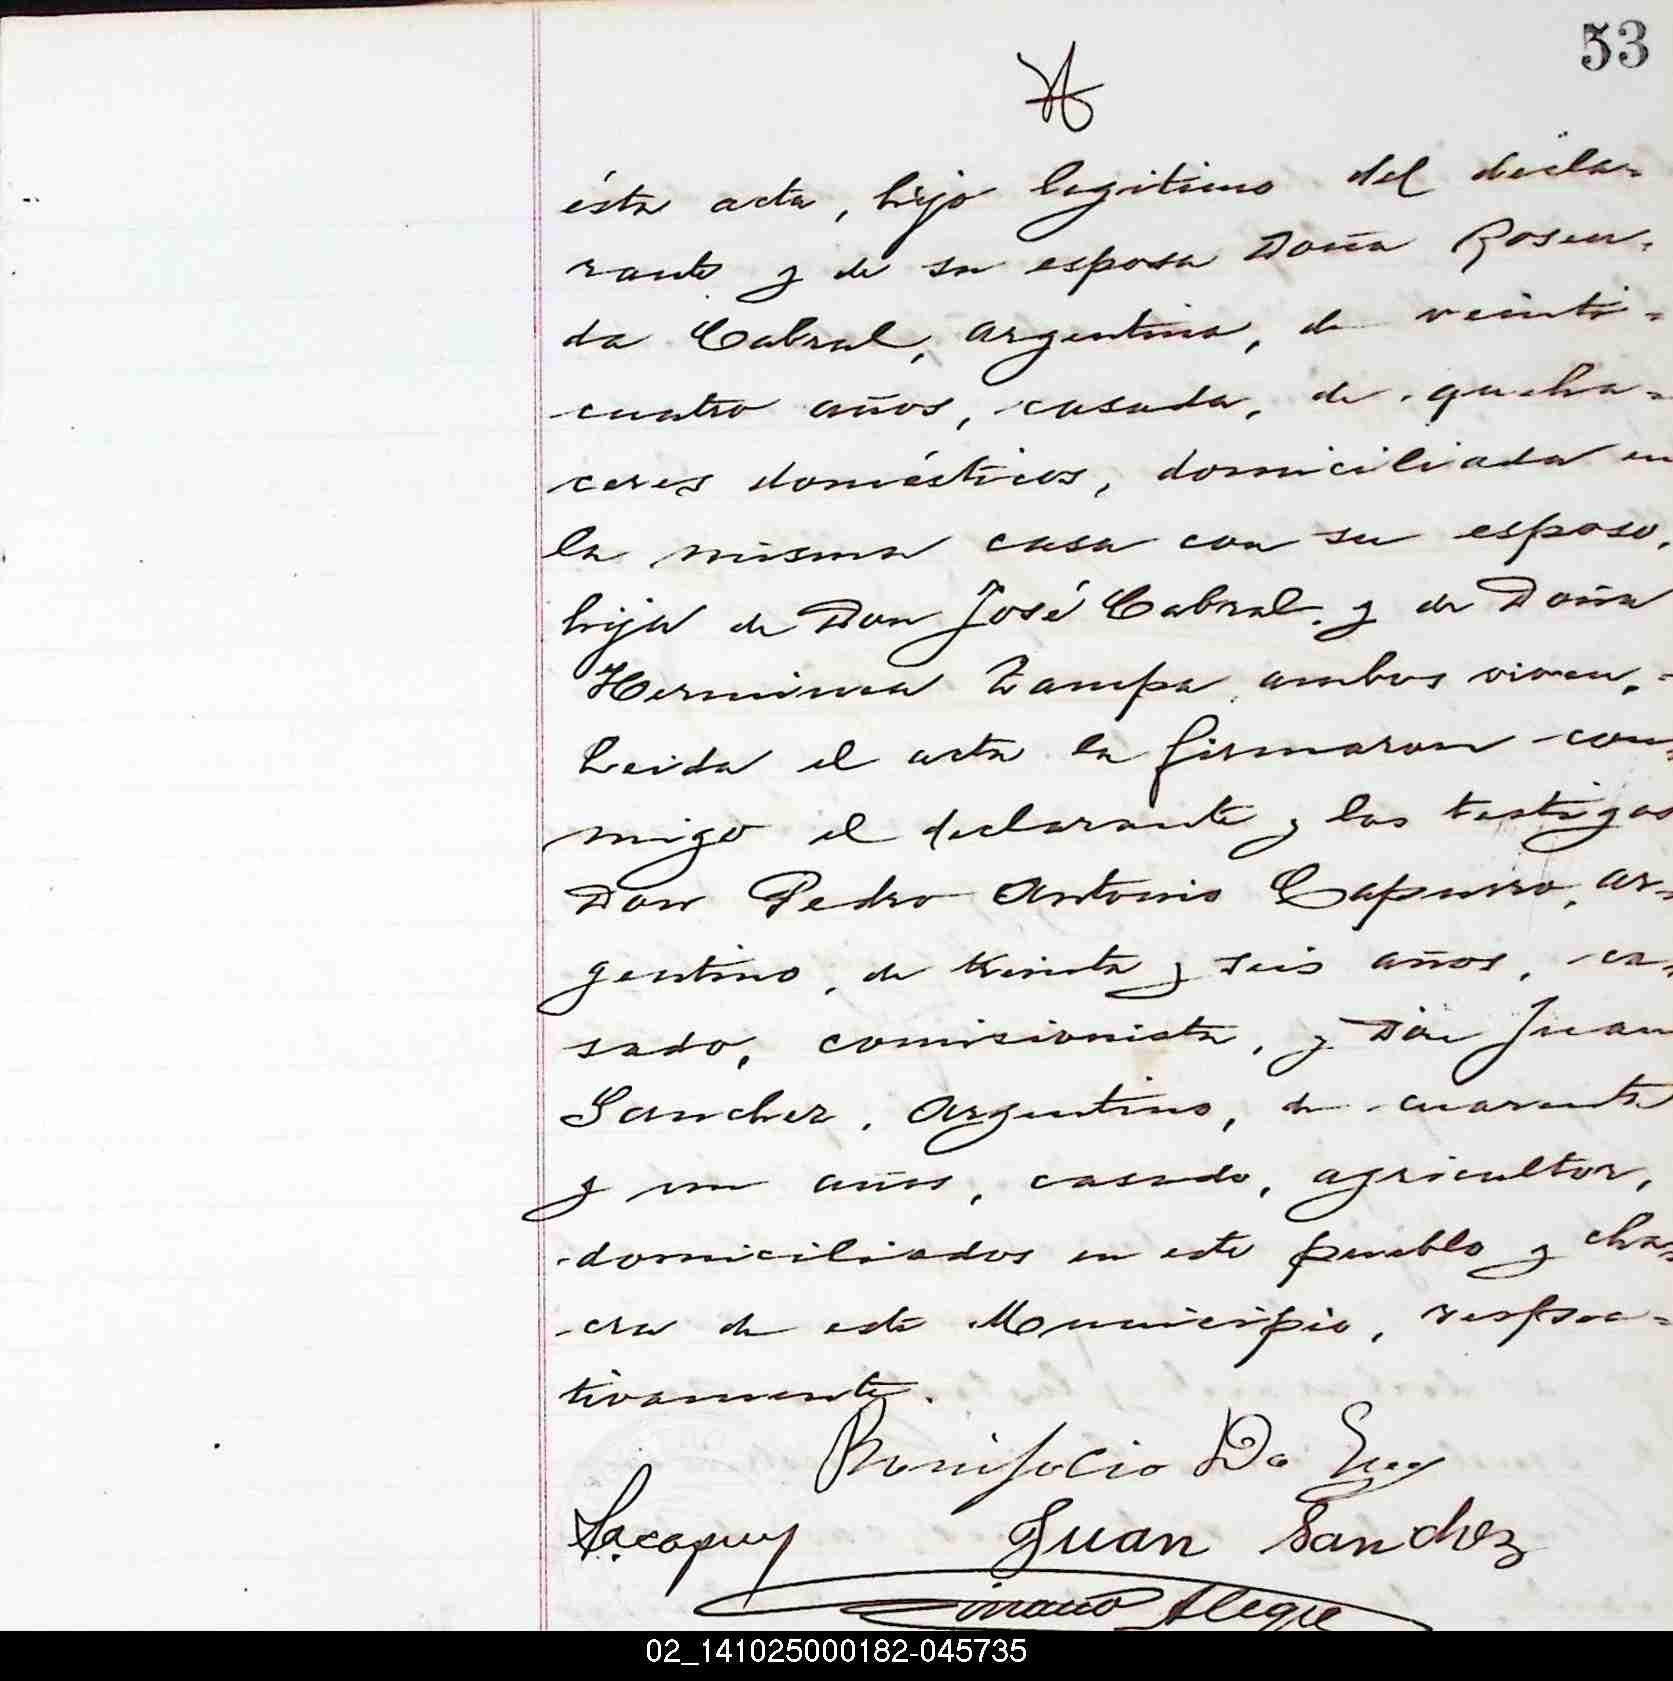 53
ésta acta, hijo legitimo del decla=
rante y de su esposa Doña Rosen=
da Cabral, argentina, de veinti=
cuatro años, casada, de queha=
ceres domésticos, domiciliada en
la misma casa con su esposo,
hija de Don José Cabral y de Doña
Herminia Zampa ambos viven.=
Leida el acta la firmaron con=
migo el declarante y los testigos
Don Pedro Antonio Capurro, ar=
gentino, de treinta y seis años, ca=
sado, comisionista, y Don Juan
Sanchez, argentino, de cuarenta
y un años, casado, agricultor,
domiciliados en este pueblo y cha=
cra de este Municipio, respec=
tivamente.
Bonifocio Da
Juan Sanchez
Alegre
02_141025000182-045735